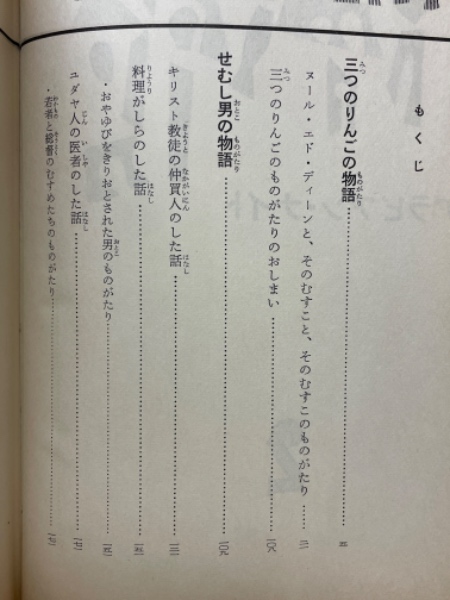 もくじ
三つのりんごの物語
ヌール・エド・ディーンと、そのむすこと、そのむすこのものがたり
三つのりんごのものがたりのおしまい
せむし男の物語
キリスト教徒の仲買人のした話
料理がしらのした話
・おやゆびをきりおとされた男のものがたり
ユダヤ人の医者のした話
・若者と総督のむすめたちのものがたり